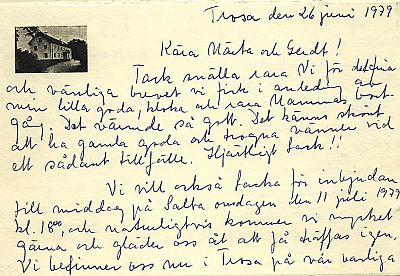 Trosa den 26 juni 1979
Kära Märta och Gerdt!
Tack snälla rara Ni för det fina
och vänliga brevet vi fick i anledning av
min lilla goda, kloka och rara Mammas bort-
gång. Det värmde så gott. Det känns skönt
att ha gamla goda och trogna vänner vid
ett sådant tillfälle. Hjärtligt Tack!!
Vi vill också tacka för inbjudan
till middag på Salta onsdagen den 11 juli 1979
kl. 18.00, och naturligtvis kommer vi mycket
gärna och gläder oss åt att få träffas igen.
Vi befinner oss nu i Trosa på vår vanliga